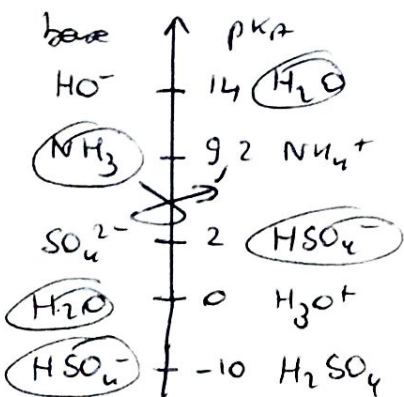 base pKA
HO⁻ 14 H₂O
NH₃ 9,2 NH₄⁺
SO₄²⁻ 2 HSO₄⁻
H₂O 0 H₃O⁺
HSO₄⁻ -10 H₂SO₄